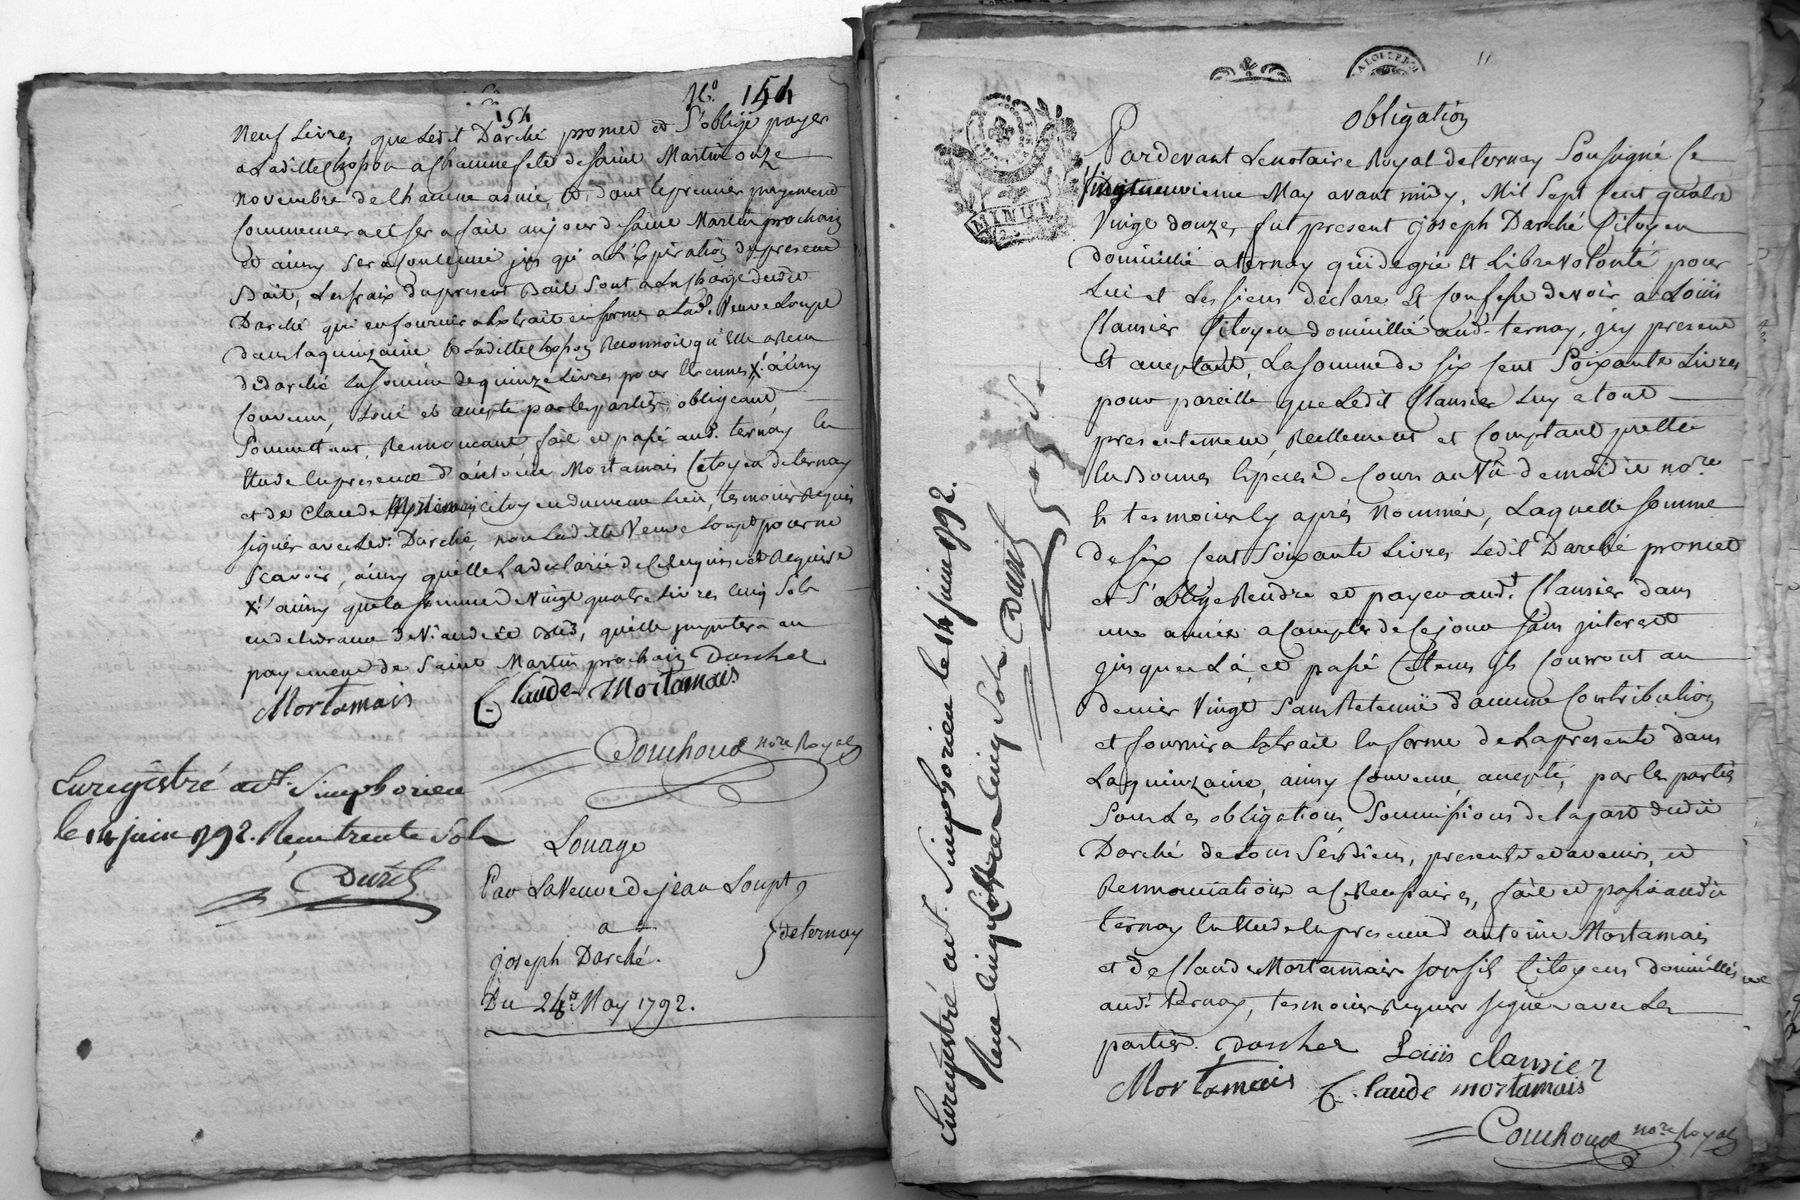 N.o 154
154
Neuf Livres que Ledit Darché promet et S'oblige payer
a Ladille Chopon a Chaune fete de saint Martin onze
novembre de Chacune année, et, dont le premier payement
Commencera et Ser a fait au jour de saint Martin prochain
et ainsy Ser a Continuié jus qu'a L'Expiration du present
Bail, Les fraix du present Bail Sont a La charge dudit
Darché qui en fournira Extrait en forme a Lad. Veuve Loupt
dans la quinzaine Et Laditte Chopon Reconnoit qu'Elle a Recu
de darché La Somme de quinze Livres pour Etrennes X. ainsy
Convenu, Loué et accepté par les parties, obligeant
Soumettant, Renoncant fait et passé aud. ternay En
Etude En presence d'antoine Mortamais Citoyen de ternay
et de Claude Mortamais Citoyen du meme Lieu, temoins Requis
signés avec Led. Darché, non Ladille Veuve Loupt pour ne
Scavoir, ainsy qu'elle La declarée de Ce Enquise et Requise
X. ainsy que la Somme de Vingt quatre Livres cinq Sols
en delivrance de Viande et bled, qu'elle imputera au
payement de Saint Martin prochain Darchet
Mortamais Claude Mortamais
Couchoud no.re Royal
Enregistré a St. Simphorien
le 14 juin 1792. Recu trente Sols
Durel
Louage
Par La Veuve de jean Loupt
a
joseph Darché.
de ternay
Du 24e May 1792.
obligation
Pardevant Le notaire Royal de ternay Soussigné Ce
Vingt neuvieme May avant midy, Mil Sept Cent quatre
Vingt douze, fut present joseph Darché Citoyen
domicillié a ternay qui de gré Et Libre volonté pour
Lui et Les siens declare Et Confesse devoir a Loüis
Clausier Citoyen domicillié aud. ternay, icy present
Et acceptant, La somme de six Cent Soixante Livres
pour pareille que Ledit Clausier Luy a tout
presentement Reellement et Comptant pretté
En Bonnes Especes de Cours au Vû de moi dit no.re
Et temoins Cy après Nommés, Laquelle Somme
de six Cent Soixante Livres Ledit Darché promet
et S'oblige Rendre et payer aud.t Clausier dans
une année a Compter de Ce jour sans interest
jusques Là, et passé Ce tems ils Courront au
denier Vingt Sans Retenüe d'aucune Contribution
et fournira Extrait En forme de La presente dans
La quinzaine, ainsy Convenu, accepté, par les parties
Sous Les obligations Soumissions de la part dudit
Darché de tous Ses Biens, presents et avenirs, et
Renonciations a Ce Necessaires, fait et passé audit
ternay En Etude En presence d'antoine Mortamais
et de Claude Mortamais Son fils Citoyens domicilliés
aud. ternay, temoins Requis signés avec Les
parties. Darchet Loüis clausier
Mortamais Claude mortamais
Couchoud no.re Royal
Enregistré a St. Simphorien le 14 juin 1792.
Recu cinq Livres cinq Sols
Durel
MINUT